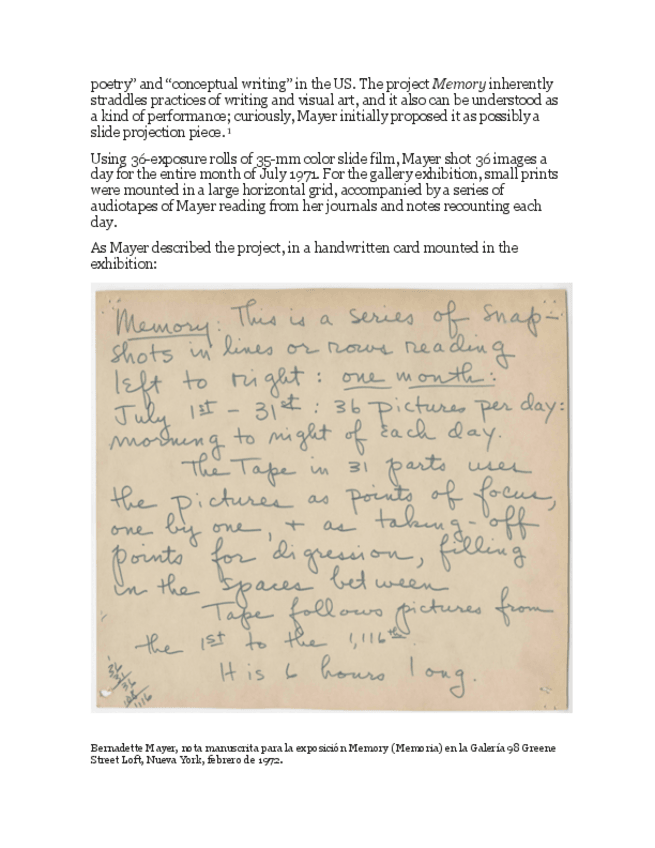 poetry” and “conceptual writing” in the US. The project Memory inherently
straddles practices of writing and visual art, and it also can be understood as
a kind of performance; curiously, Mayer initially proposed it as possibly a
slide projection piece. 1
Using 36-exposure rolls of 35-mm color slide film, Mayer shot 36 images a
day for the entire month of July 1971. For the gallery exhibition, small prints
were mounted in a large horizontal grid, accompanied by a series of
audiotapes of Mayer reading from her journals and notes recounting each
day.
As Mayer described the project, in a handwritten card mounted in the
exhibition:
Memory: This is a series of snap-
shots in lines or rows reading
left to right: one month:
July 1st - 31st: 36 pictures per day:
morning to night of each day.
The Tape in 31 parts uses
the pictures as points of focus,
one by one, + as taking-off
points for digression, filling
in the spaces between
Tape follows pictures from
the 1st to the 1,116th.
It is 6 hours long.
36
31
36
108
1116
Bernadette Mayer, nota manuscrita para la exposición Memory (Memoria) en la Galería 98 Greene
Street Loft, Nueva York, febrero de 1972.